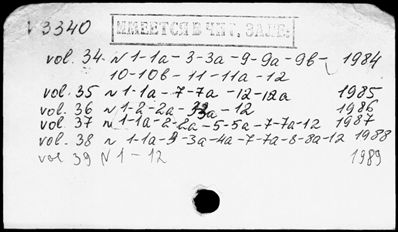 V 3340 ИМЕЕТСЯ В ЧИТ. ЗАЛЕ.
vol. 34. N 1-1a-3-3a-9-9a-9b- 1984
10-10b-11-11a-12
vol. 35 N 1-1a-7-7a-12-12a 1985
vol. 36 N 1-2-2a-3a-12 1986
vol. 37 N 1-1a-2-2a-5-5a-7-7a-12 1987
vol. 38 N 1-1a-3-3a-4a-7-7a-8-8a-12 1988
vol 39 N 1-12 1989